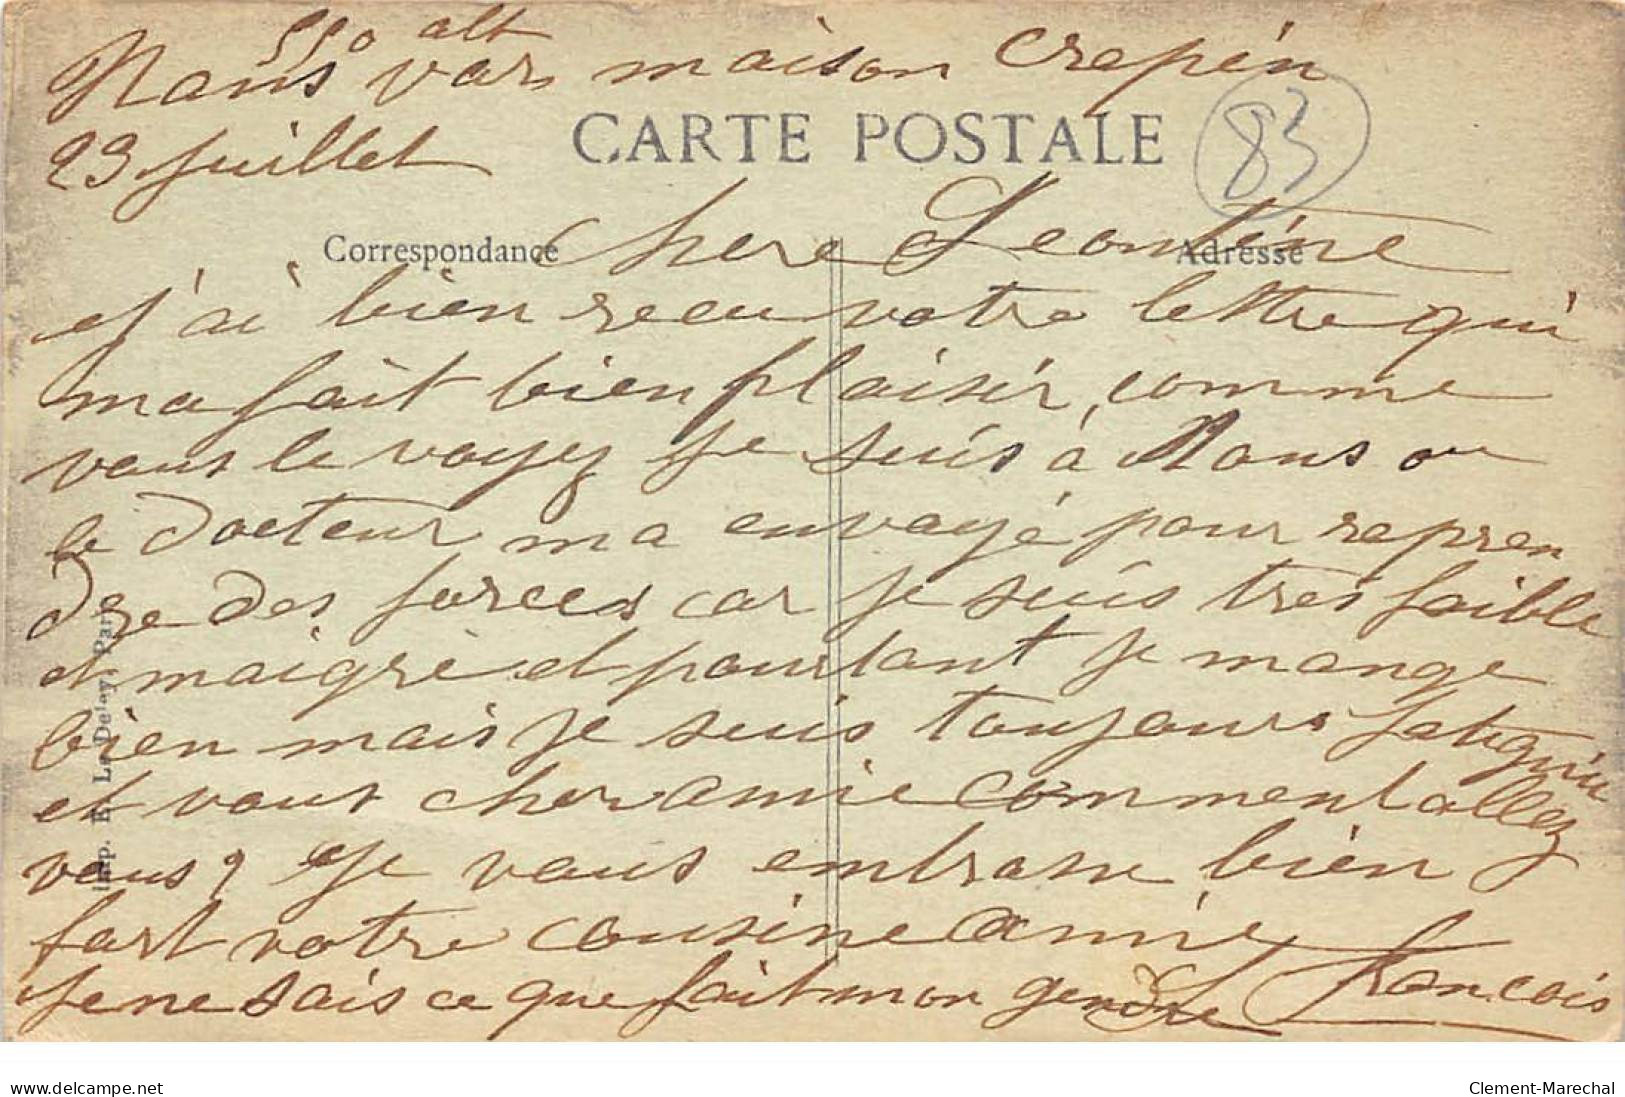 550 alt
Nans var maison Crepin
CARTE POSTALE
83
23 Juillet
Correspondance
Adresse
Chere Leontine
j'ai bien recu votre lettre qui
ma fait bien plaisir, comme
vous le voyez je suis à Nans ou
le docteur ma envoyé pour repren
dre des forces car je suis très faible
et maigre et pourtant je mange
bien mais je suis toujours fatiguée
et vous cher amie comment allez
vous? Je vous embrasse bien
fort votre cousine amie
François
Je ne sais ce que fait mon gendre
Imp. E. Le Deley, Paris
delcampe.net
Clement-Marechal